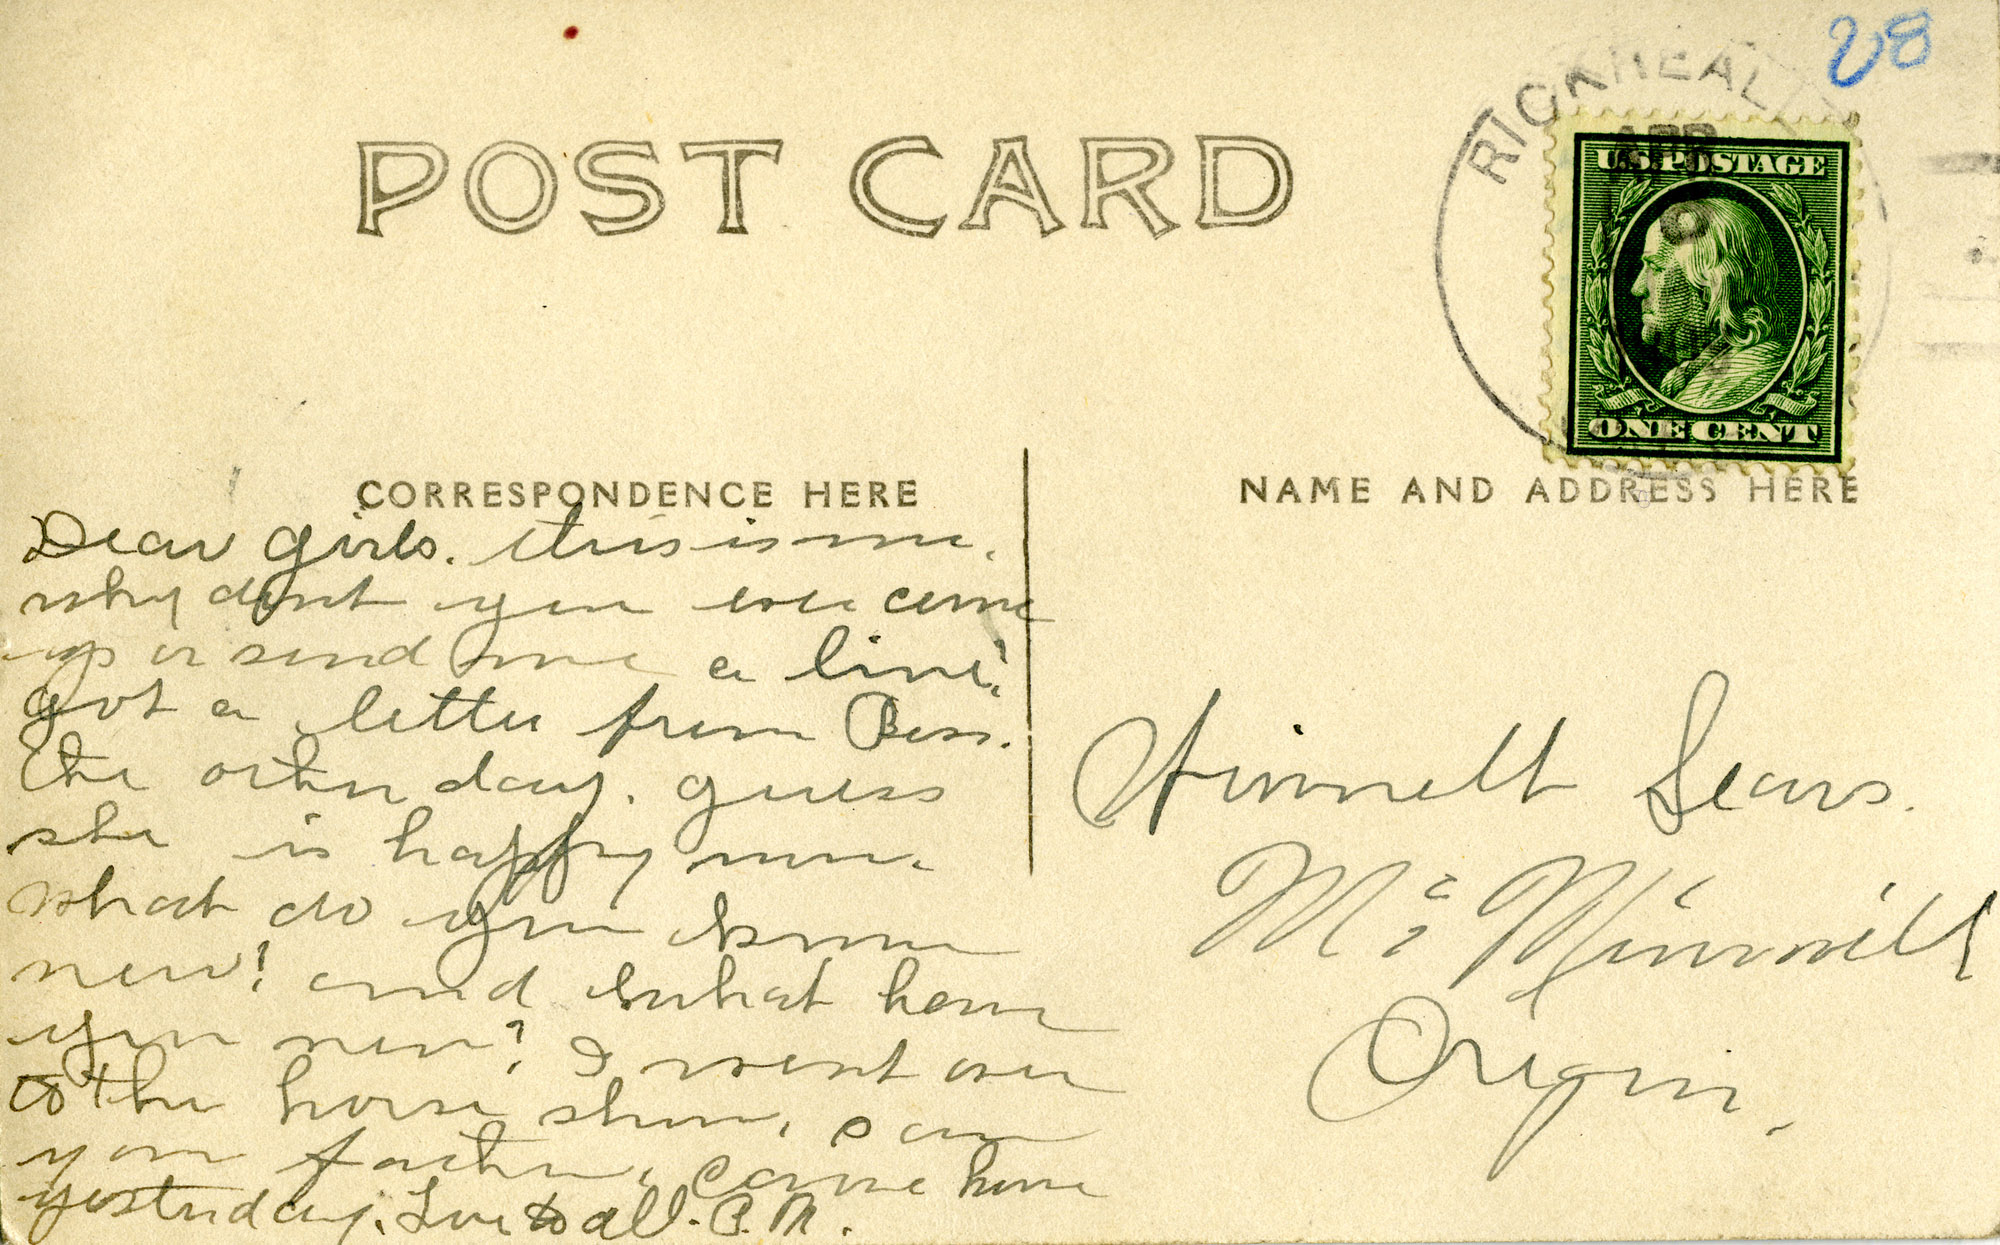 28
RICKREALL
APR
9
U.S. POSTAGE
ONE CENT
POST CARD
CORRESPONDENCE HERE
NAME AND ADDRESS HERE
Dear girls. this is me.
why dont you ever come
up or send me a line?
got a letter from Bess.
the other day. guess
she is happy now.
what do you know
new? and what have
you new? I went over
to the horse show, saw
your father, came home
yesterday. Love to all. P. M.
Winnett Sears.
Mc Minnvill
Oregon.